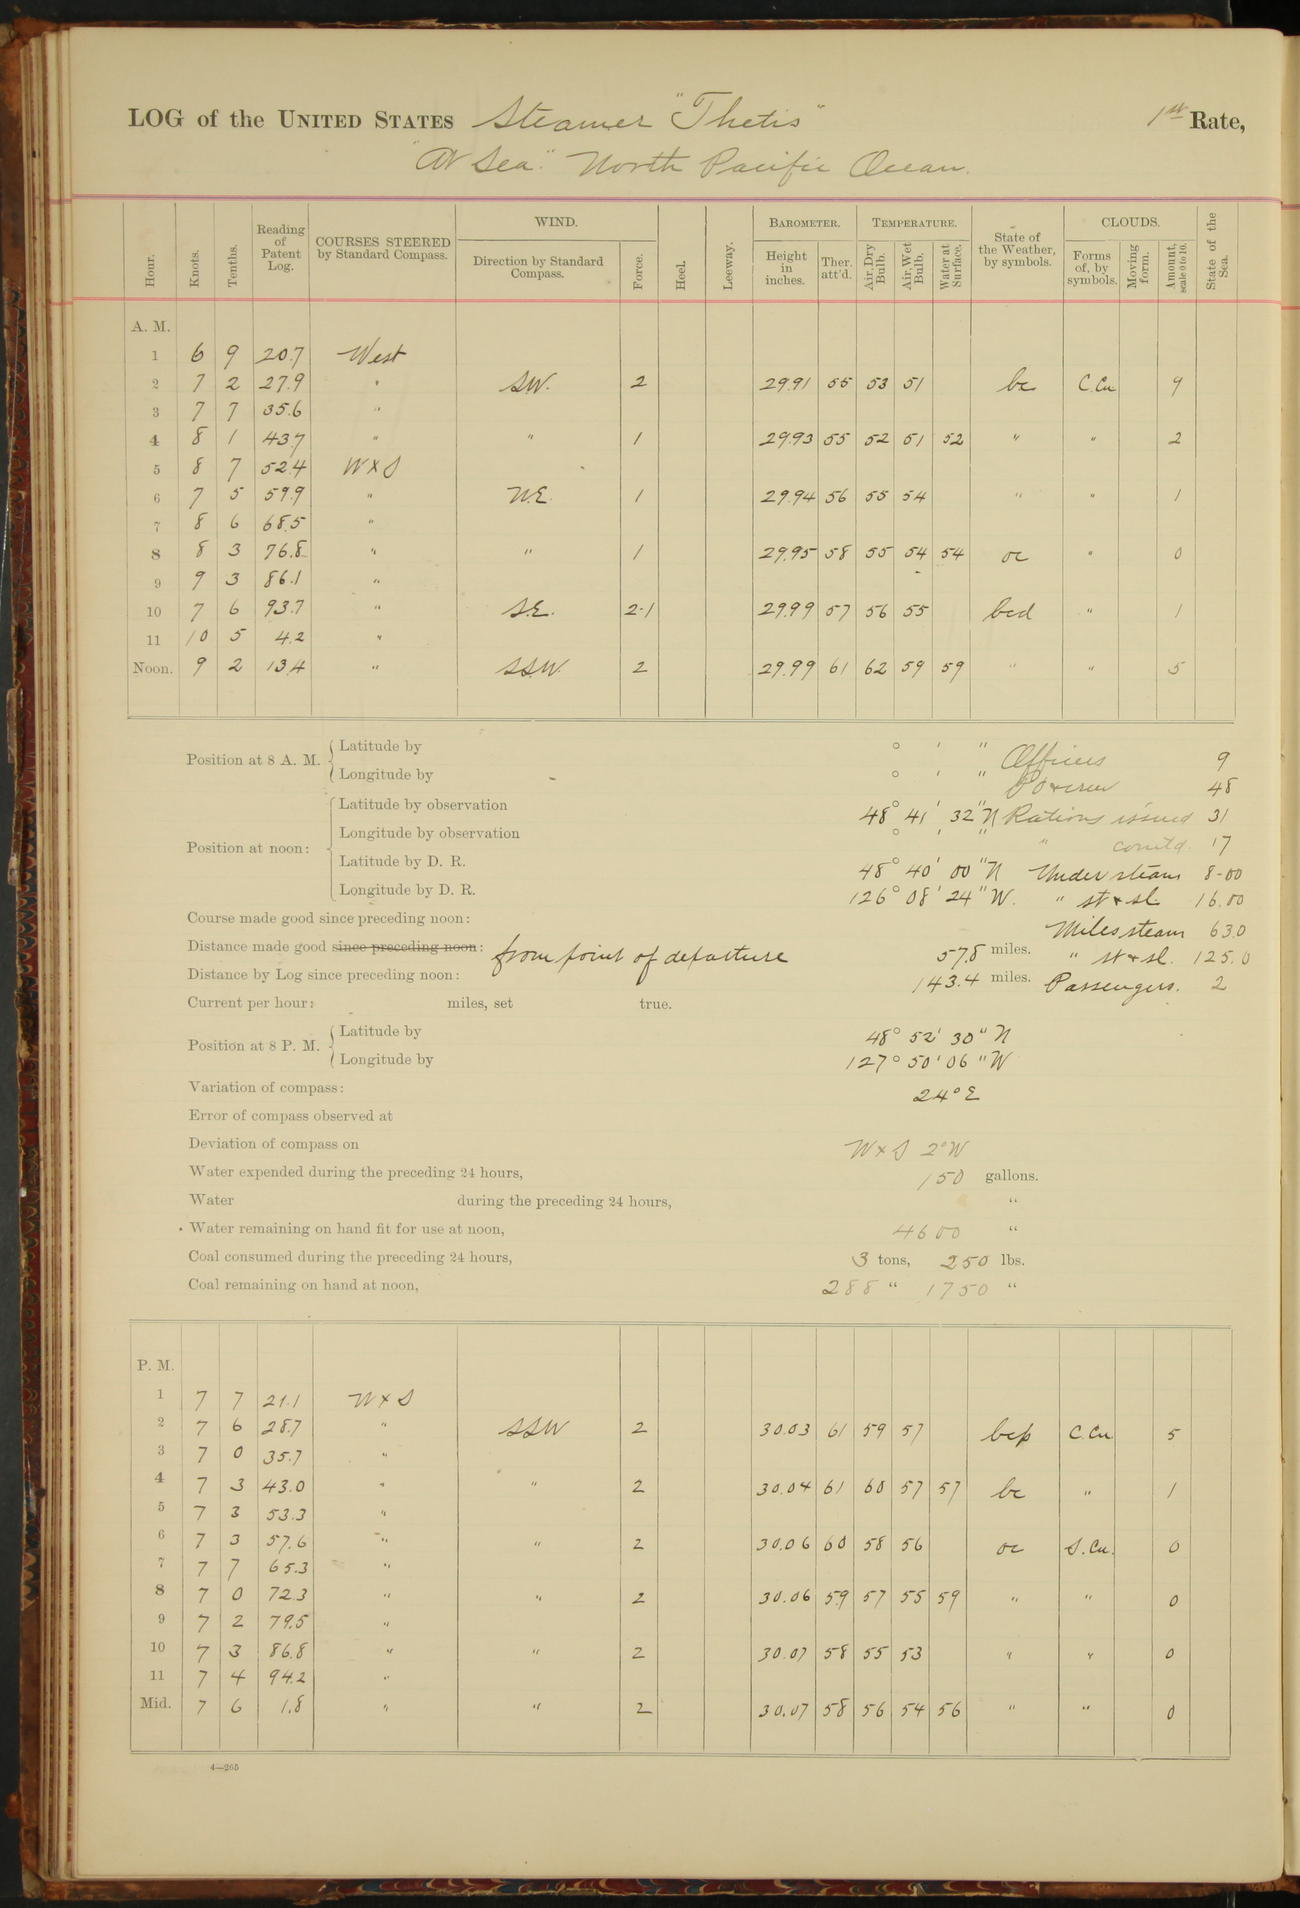 LOG of the UNITED STATES Steamer "Thetis" 1st Rate,
"At Sea." North Pacific Ocean.
Hour. Knots. Tenths. Reading of Patent Log. COURSES STEERED by Standard Compass. WIND. Direction by Standard Compass. Force. Heel. Leeway. BAROMETER. Height in inches. Ther. att'd. TEMPERATURE. Air, Dry Bulb. Air, Wet Bulb. Water at Surface. State of the Weather, by symbols. CLOUDS. Forms of, by symbols. Moving form. Amount, scale 0 to 10. State of the Sea.
A. M.
1 6 9 20.7 West
2 7 2 27.9 " SW. 2 29.91 55 53 51 bc C.Cu 9
3 7 7 35.6 "
4 8 1 43.7 " " 1 29.93 55 52 51 52 " " 2
5 8 7 52.4 WxS
6 7 5 59.9 " N.E. 1 29.94 56 55 54 " " 1
7 8 6 68.5 "
8 8 3 76.8 " " 1 29.95 58 55 54 54 oc " 0
9 9 3 86.1 "
10 7 6 93.7 " S.E. 2-1 29.99 57 56 55 bcd " 1
11 10 5 4.2 "
Noon. 9 2 13.4 " SSW. 2 29.99 61 62 59 59 " " 5
Position at 8 A. M. Latitude by ° ' " Officers 9
Longitude by ° ' " P O & crew 48
Position at noon: Latitude by observation 48° 41' 32" N Rations issued 31
Longitude by observation ° ' " " comtd. 17
Latitude by D. R. 48° 40' 00" N Under steam 8-00
Longitude by D. R. 126° 08' 24" W. " st & sl 16.00
Course made good since preceding noon: Miles steam 63.0
Distance made good since preceding noon: from point of departure 57.8 miles. " st & sl. 125.0
Distance by Log since preceding noon: 143.4 miles. Passengers. 2
Current per hour: miles, set true.
Position at 8 P. M. Latitude by 48° 52' 30" N
Longitude by 127° 50' 06" W
Variation of compass: 24° E
Error of compass observed at
Deviation of compass on WxS 2° W
Water expended during the preceding 24 hours, 150 gallons.
Water during the preceding 24 hours, "
Water remaining on hand fit for use at noon, 4600 "
Coal consumed during the preceding 24 hours, 3 tons, 250 lbs.
Coal remaining on hand at noon, 288 " 1750 "
P. M.
1 7 7 21.1 WxS
2 7 6 28.7 " SSW 2 30.03 61 59 57 bcp C.Cu 5
3 7 0 35.7 "
4 7 3 43.0 " " 2 30.04 61 60 57 57 bc " 1
5 7 3 53.3 "
6 7 3 57.6 " " 2 30.06 60 58 56 oc S.Cu. 0
7 7 7 65.3 "
8 7 0 72.3 " " 2 30.06 59 57 55 59 " " 0
9 7 2 79.5 "
10 7 3 86.8 " " 2 30.07 58 55 53 " " 0
11 7 4 94.2 "
Mid. 7 6 1.8 " " 2 30.07 58 56 54 56 " " 0
4—265